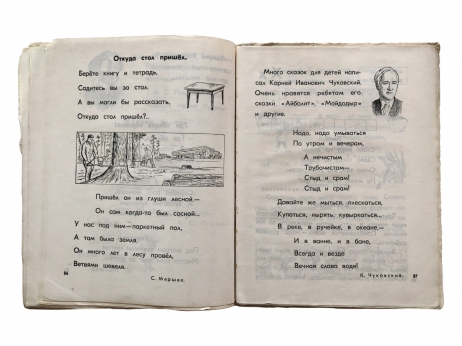 Откуда стол пришёл.
Берёте книгу и тетрадь,
Садитесь вы за стол.
А вы могли бы рассказать,
Откуда стол пришёл?..
Пришёл он из глуши лесной—
Он сам когда-то был сосной...
У нас под ним—паркетный пол,
А там была земля.
Он много лет в лесу провёл,
Ветвями шевеля.
С. Маршак.
86
Много сказок для детей напи-
сал Корней Иванович Чуковский.
Очень нравятся ребятам его
сказки «Айболит», «Мойдодыр»
и другие.
Надо, надо умываться
По утрам и вечерам,
А нечистым
Трубочистам—
Стыд и срам!
Стыд и срам!
Давайте же мыться, плескаться,
Купаться, нырять, кувыркаться...
В реке, в ручейке, в океане,—
И в ванне, и в бане,
Всегда и везде
Вечная слава воде!
К. Чуковский.
87